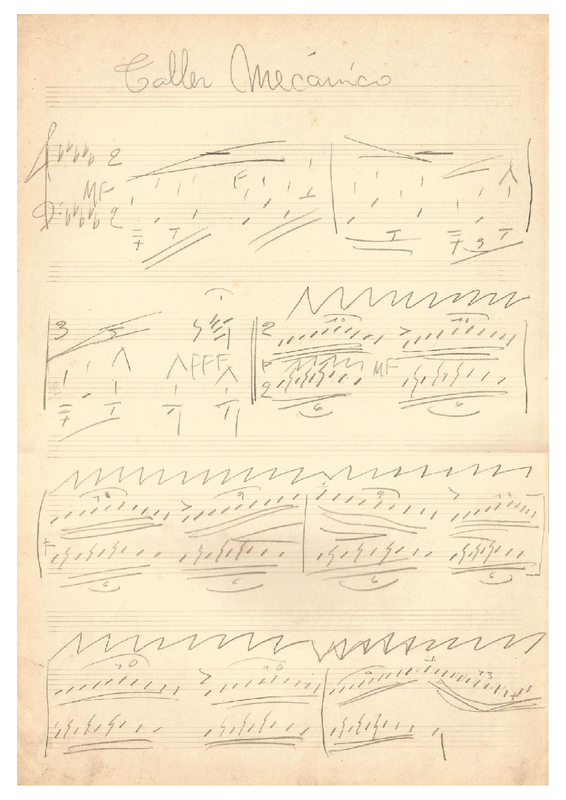 Taller Mecánico
2
MF F
2
3
3 FFF
2 10 11
P MF
2 6 6
10 9 9
6 6 6 6
10 10 13